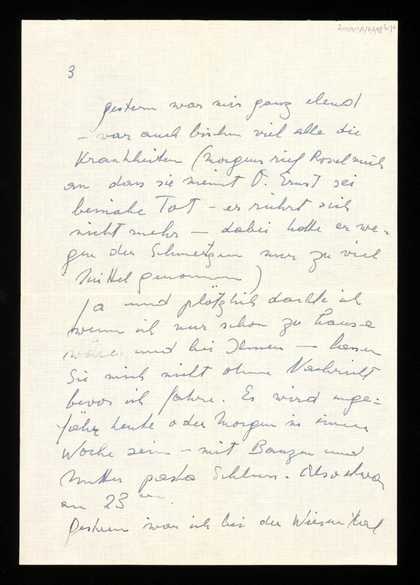 3
gestern war mir ganz elend
– war auch bischen viel alle die
Krankheiten (morgens rief Rosel mich
an dass sie meint O. Ernst sei
beinahe Tot – er rührt sich
nicht mehr – dabei hatte er we-
gen der Schmerzen nur zu viel
Mittel genommen)
Ja und plötzlich dachte ich
wenn ich nur schon zu hause
wäre und bei Ihnen – lassen
Sie mich nicht ohne Nachricht
bevor ich fahre. Es wird unge-
fähr heute oder Morgen in einer
Woche sein – mit Banzer und
Mutter Schluss. Also etwa
am 23
Gestern war ich bei der